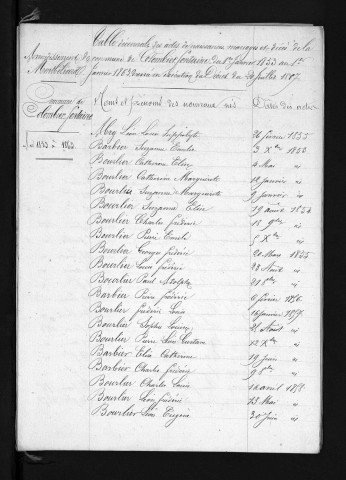 Table décennale des actes de naissance mariages et décès de la
Commune de Colombier fontaine du 1er Janvier 1853 au 1er
Janvier 1863, dressée en exécution du Décret du 20 Juillet 1807.
Arrondissement de
Montbéliard
Commune de
Colombier fontaine
Noms et prénoms des nouveaux nés
Dates des actes
de 1853 à 1863.
Louis Hippolyte 26 février 1853
Barbier Suzanne Emilie 3 Xbre 1853
Bourlier Catherine 4 Mai
Bourlier Catherine Marguerite Janvier
Bourlier Suzanne Marguerite 9 Janvier
Bourlier Suzanne 19 août 1854
Bourlier Charles fréderic 15 9bre
Bourlier Pierre Emile 5 Xbre
Bourlier Georges fréderic 20 Mars 1855
Bourlier Louis fréderic 23 Août
Bourlier Paul Adolphe
Barbier Pierre fréderic 6 février 1856
Bourlier fréderic Louis 16 janvier 1857
Bourlier Sophie Louise 21 Août
Bourlier Pierre 12 Xbre
Barbier Catherine 19 Juin
Barbier Charles fréderic
Bourlier Charles Louis 16 avril
Bourlier Léon fréderic 13 Mai
Bourlier Eugène 30 Juin